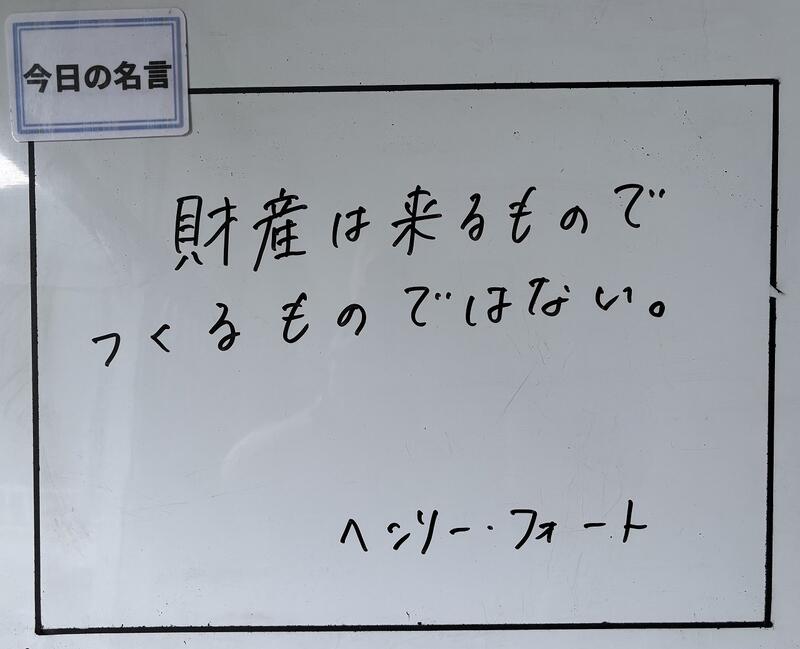 今日の名言
財産は来るもので
つくるものではない。
ヘンリー・フォート